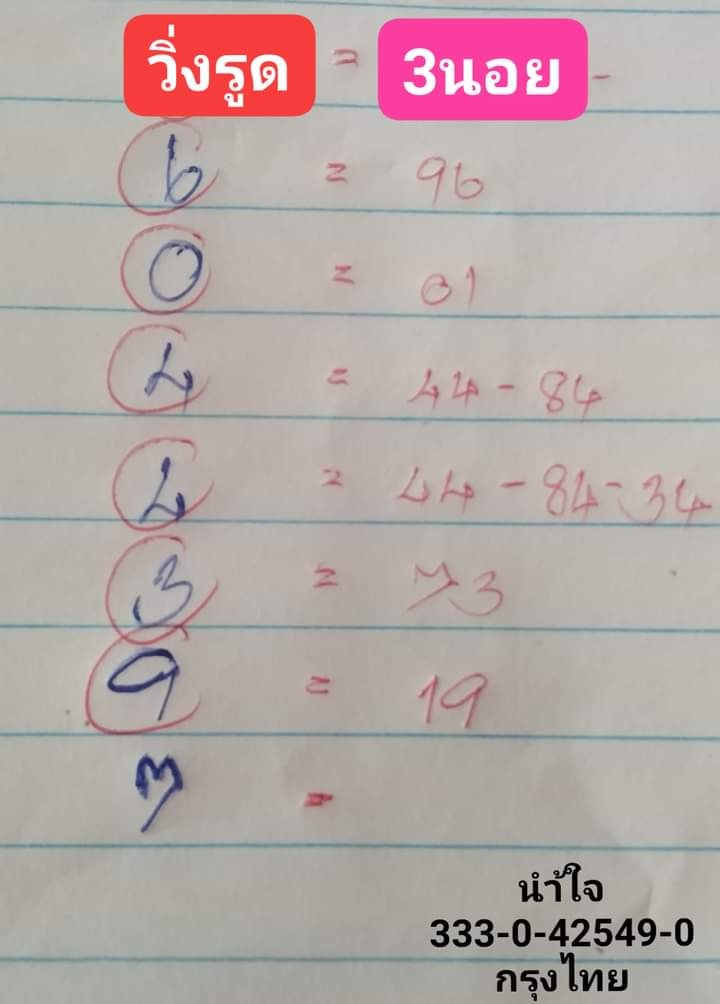 วิ่งรูด = 3นอย -
6 = 96
0 = 01
4 = 44-84
4 = 44-84-34
3 = 73
9 = 19
7 =
นำ้ใจ
333-0-42549-0
กรุงไทย